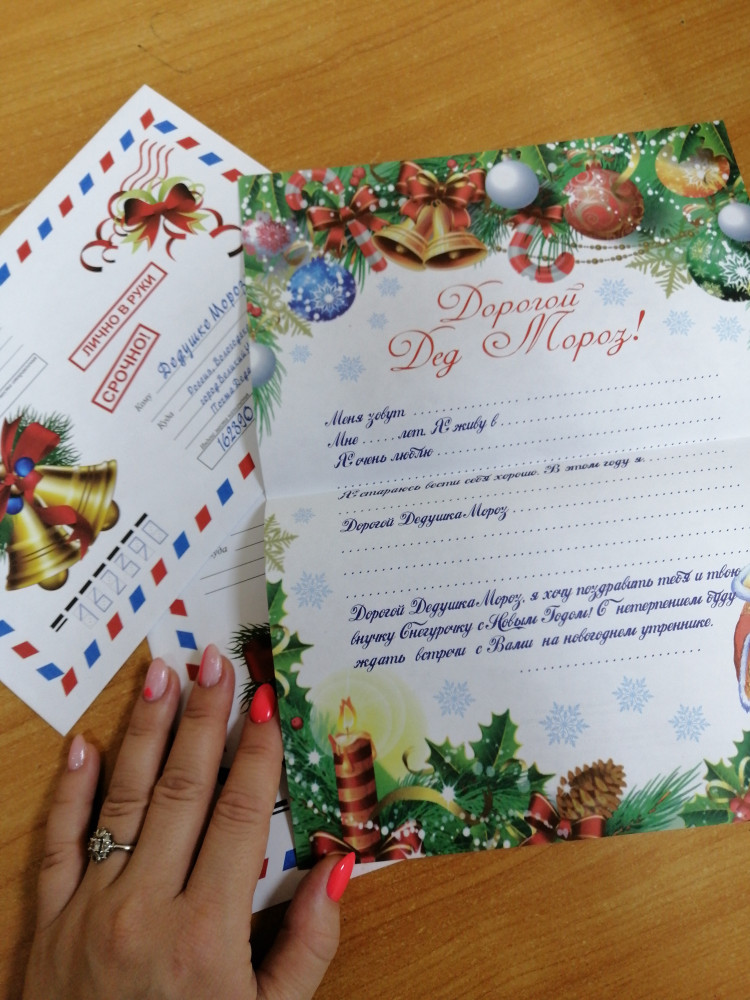 ЛИЧНО В РУКИ
СРОЧНО!
Кому Дедушке Морозу
Куда Россия, Вологодская
город Великий
Почта Деда
162390
162390
Куда
Дорогой
Дед Мороз!
Меня зовут
Мне ...... лет. Я живу в
Я очень люблю
Я стараюсь вести себя хорошо. В этом году я
Дорогой Дедушка Мороз
Дорогой Дедушка Мороз, я хочу поздравить тебя и твою
внучку Снегурочку с Новым Годом! С нетерпением буду
ждать встречи с Вами на новогоднем утреннике.